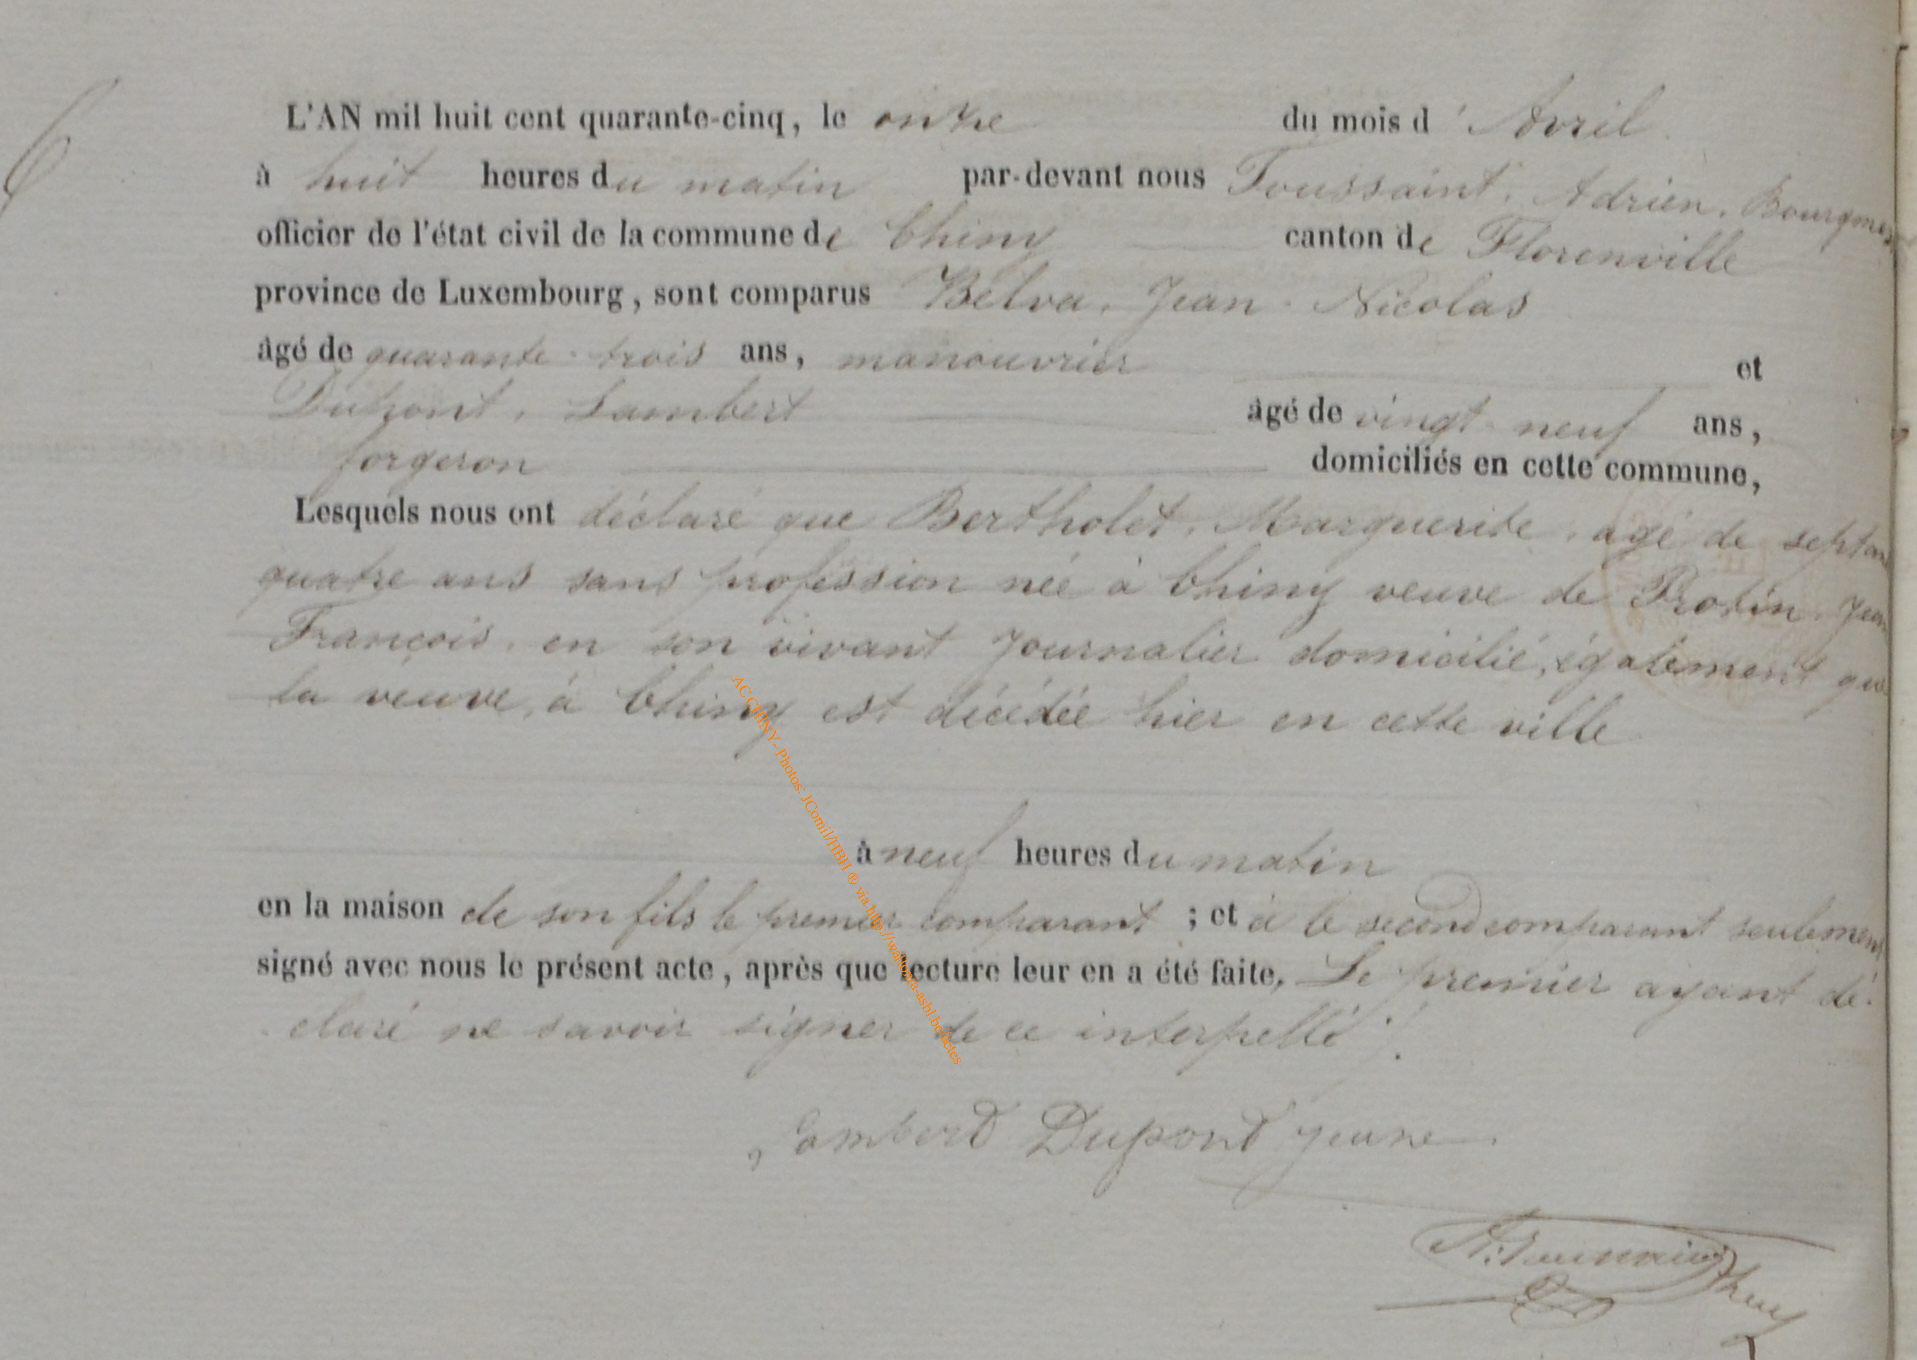 6
L'AN mil huit cent quarante-cinq, le onze du mois d'Avril
à huit heures du matin par-devant nous Toussaint, Adrien, Bourgmes
officier de l'état civil de la commune de Chiny canton de Florenville
province de Luxembourg, sont comparus Belva, Jean-Nicolas
âgé de quarante-trois ans, manouvrier et
Dupont, Lambert âgé de vingt-neuf ans,
forgeron domiciliés en cette commune,
Lesquels nous ont déclaré que Bertholet, Marguerite, agé de septan
quatre ans sans profession née à Chiny veuve de Protin, Jean
François, en son vivant Journalier domicilié, également que
la veuve, à Chiny est décédée hier en cette ville
à neuf heures du matin
en la maison de son fils le premier comparant ; et à le second comparant seulement
signé avec nous le présent acte, après que lecture leur en a été faite, Le premier ayant dé-
claré ne savoir signer de ce interpellé.
Lambert Dupont jeune
AC CHINY - Photos JComil/HBH ® via